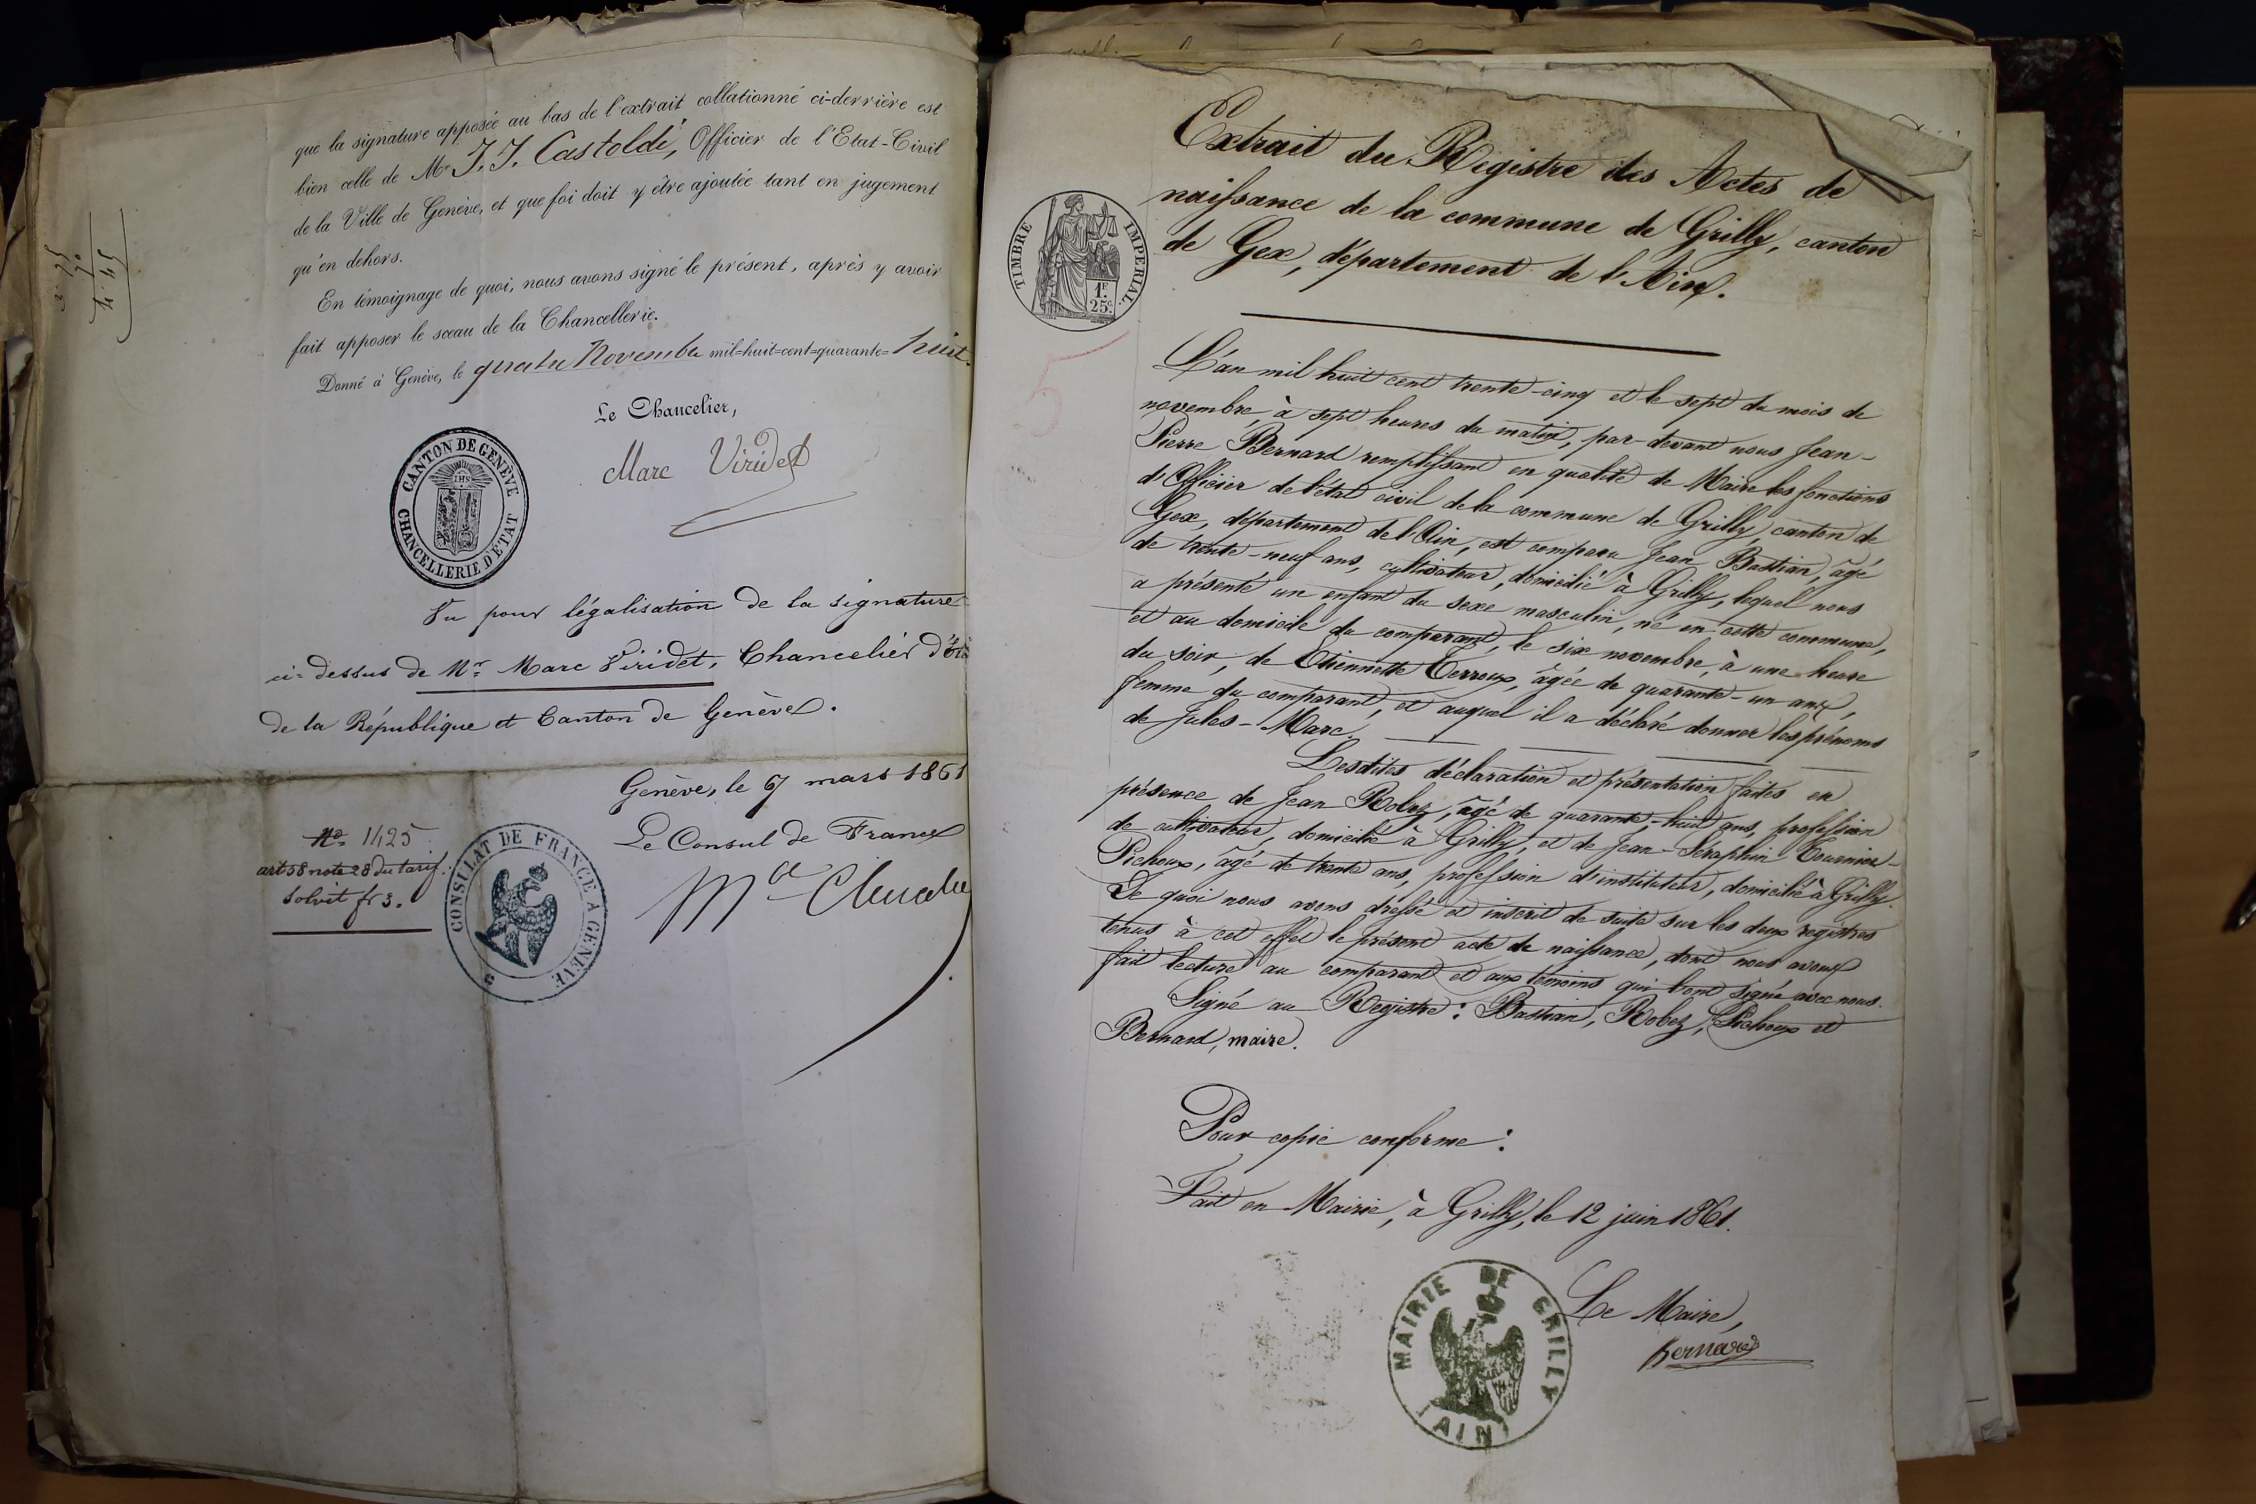 que la signature apposée au bas de l'extrait collationné ci-derrière est
bien celle de Mr J. J. Castoldi, Officier de l'Etat-Civil
de la Ville de Genève, et que foi doit y être ajoutée tant en jugement
qu'en dehors.
En témoignage de quoi, nous avons signé le présent, après y avoir
fait apposer le sceau de la Chancellerie.
Donné à Genève, le quatre Novembre mil-huit-cent-quarante-huit.
Le Chancelier,
Marc Viridet
CANTON DE GENÈVE
CHANCELLERIE D'ETAT
IHS
Vu pour légalisation de la signature
ci-dessus de Mr. Marc Viridet, Chancelier d'ét
de la République et Canton de Genève.
Genève, le 7 mars 1861
Le Consul de France
No. 1425
art 58 note 28 du tarif.
Solvit fr 3.
CONSULAT DE FRANCE A GENEVE
TIMBRE IMPERIAL.
1F.
25c.
5
Extrait du Registre des Actes de
naissance de la commune de Grilly, canton
de Gex, département de l'Ain.
L'an mil huit cent trente-cinq et le sept du mois de
novembre, à sept heures du matin, par-devant nous Jean-
Pierre Bernard remplissant en qualité de Maire les fonctions
d'Officier de l'état civil de la commune de Grilly, canton de
Gex, département de l'Ain, est comparu Jean Bastian, âgé
de trente-neuf ans, cultivateur, domicilié à Grilly, lequel nous
a présenté un enfant du sexe masculin, né en cette commune,
et au domicile du comparant, le six novembre, à une heure
du soir, de Etiennette Terroux, âgée de quarante-un ans,
femme du comparant, et auquel il a déclaré donner les prénoms
de Jules-Marc.
Lesdites déclaration et présentation faites en
présence de Jean Robez, âgé de quarante-huit ans, profession
de cultivateur, domicilié à Grilly, et de Jean-Séraphin Tournier-
Picheux, âgé de trente ans, profession d'instituteur, domicilié à Grilly.
De quoi nous avons dressé et inscrit de suite sur les deux registres
tenus à cet effet le présent acte de naissance, dont nous avons
fait lecture au comparant et aux témoins qui l'ont signé avec nous.
Signé au Registre: Bastian, Robez, Picheux et
Bernard, maire.
Pour copie conforme:
Fait en Mairie, à Grilly, le 12 juin 1861.
Le Maire,
Bernard
MAIRIE DE GRILLY
(AIN)